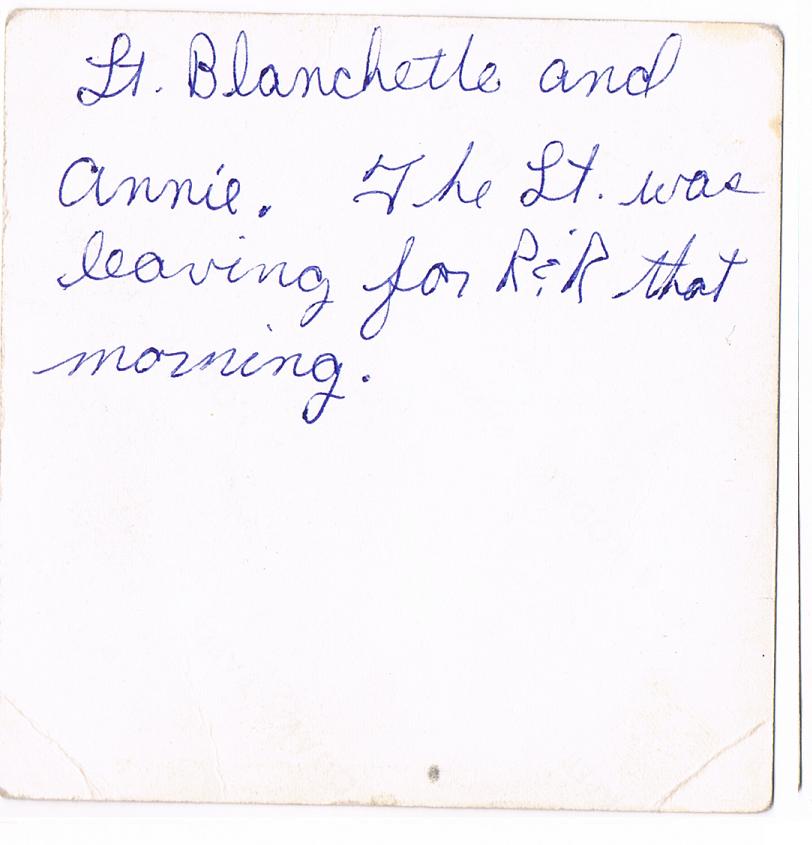 Lt. Blanchette and
Annie. The Lt. was
leaving for R&R that
morning.